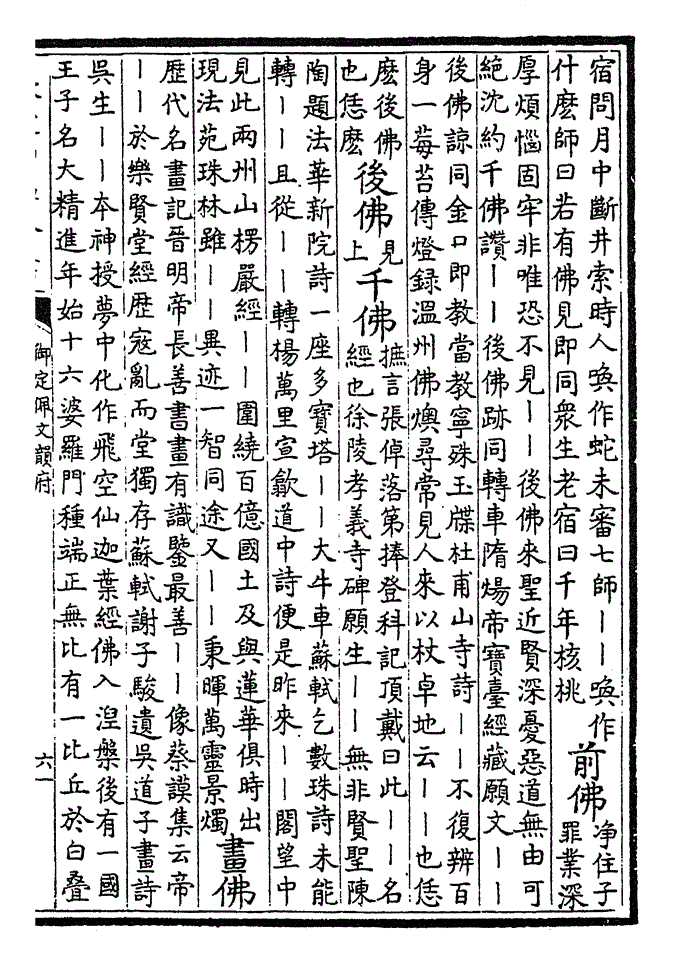 宿問月中斷井索時人喚作蛇未審七師｜｜喚作
什麽師曰若有佛見即同衆生老宿曰千年核桃
前佛
净住子
罪業深
厚煩惱固牢非唯恐不見｜｜後佛來聖近賢深憂惡道無由可
絶沈約千佛讚｜｜後佛跡同轉車隋煬帝寶臺經藏願文｜｜
後佛諒同金口即教當教寧殊玉牒杜甫山寺詩｜｜不復辨百
身一莓苔傳燈錄溫州佛燠尋常見人來以杖卓地云｜｜也恁
麽後佛
也恁麽
後佛
見
上
千佛
摭言張倬落第捧登科記頂戴曰此｜｜名
經也徐陵孝義寺碑願生｜｜無非賢聖陳
陶題法華新院詩一座多寶塔｜｜大牛車蘇軾乞數珠詩未能
轉｜｜且從｜｜轉楊萬里宣歙道中詩便是昨來｜｜閣望中
見此兩州山楞嚴經｜｜圍繞百億國土及與蓮華俱時出
現法苑珠林雖｜｜異迹一智同途又｜｜秉暉萬靈景燭
畫佛
歷代名畫記晉明帝長善書畫有識鑒最善｜｜像蔡謨集云帝
｜｜於樂賢堂經歷寇亂而堂獨存蘇軾謝子駿遺吳道子畫詩
吳生｜｜本神授夢中化作飛空仙迦葉經佛入涅槃後有一國
王子名大精進年始十六婆羅門種端正無比有一比丘於白疊
御定佩文韻府
六一